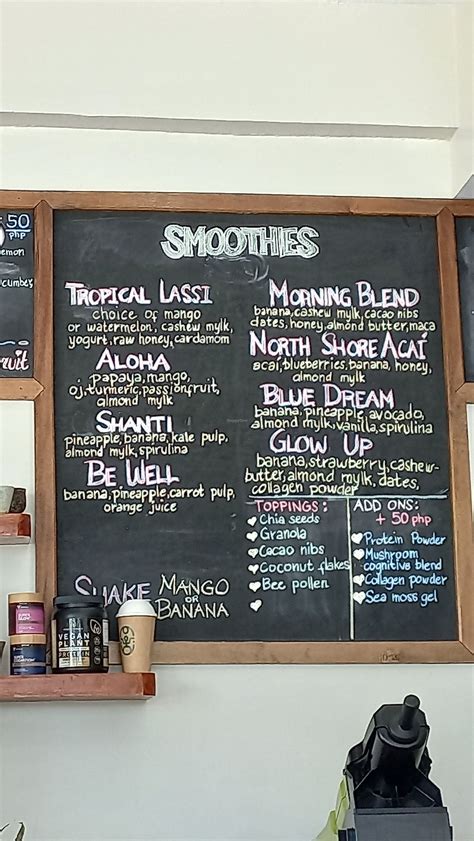 50
php
emon
cumber
ruit
SMOOTHIES
TROPICAL LASSI
choice of mango
or watermelon, cashew mylk,
yogurt, raw honey, cardamom
ALOHA
papaya, mango,
oj, turmeric, passionfruit,
almond mylk
SHANTI
pineapple, banana, kale pulp,
almond mylk, spirulina
BE WELL
banana, pineapple, carrot pulp,
orange juice
SHAKE MANGO
OR
BANANA
MORNING BLEND
banana, cashew mylk, cacao nibs
dates, honey, almond butter, maca
NORTH SHORE ACAÍ
acai, blueberries, banana, honey,
almond mylk
BLUE DREAM
banana, pineapple, avocado,
almond mylk, vanilla, spirulina
GLOW UP
banana, strawberry, cashew-
butter, almond mylk, dates,
collagen powder
TOPPINGS:
Chia seeds
Granola
Cacao nibs
Coconut flakes
Bee pollen
ADD ONS:
+ 50 php
Protein Powder
Mushroom
cognitive blend
Collagen powder
Sea moss gel
VEGAN
PLANT
PROTEIN